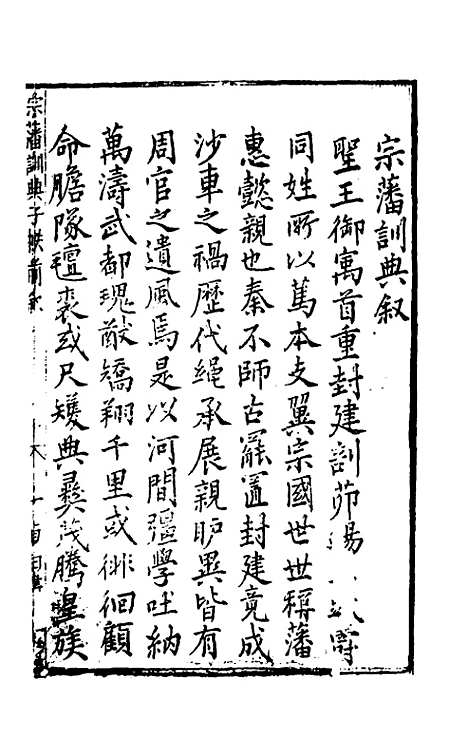 宗藩訓典叙
聖王御寓首重封建訓茆錫
同姓所以篤本支翼宗國世世稱藩
惠懿親也秦不師古罷置封建竟成
沙車之禍歷代繩承展親眆異皆有
周官之遺風焉是以河間彊學吐納
萬濤武都瑰猷矯翔千里或徘徊顧
命膽隊氊裘或尺矱典彝茂騰皇族
宗藩訓典